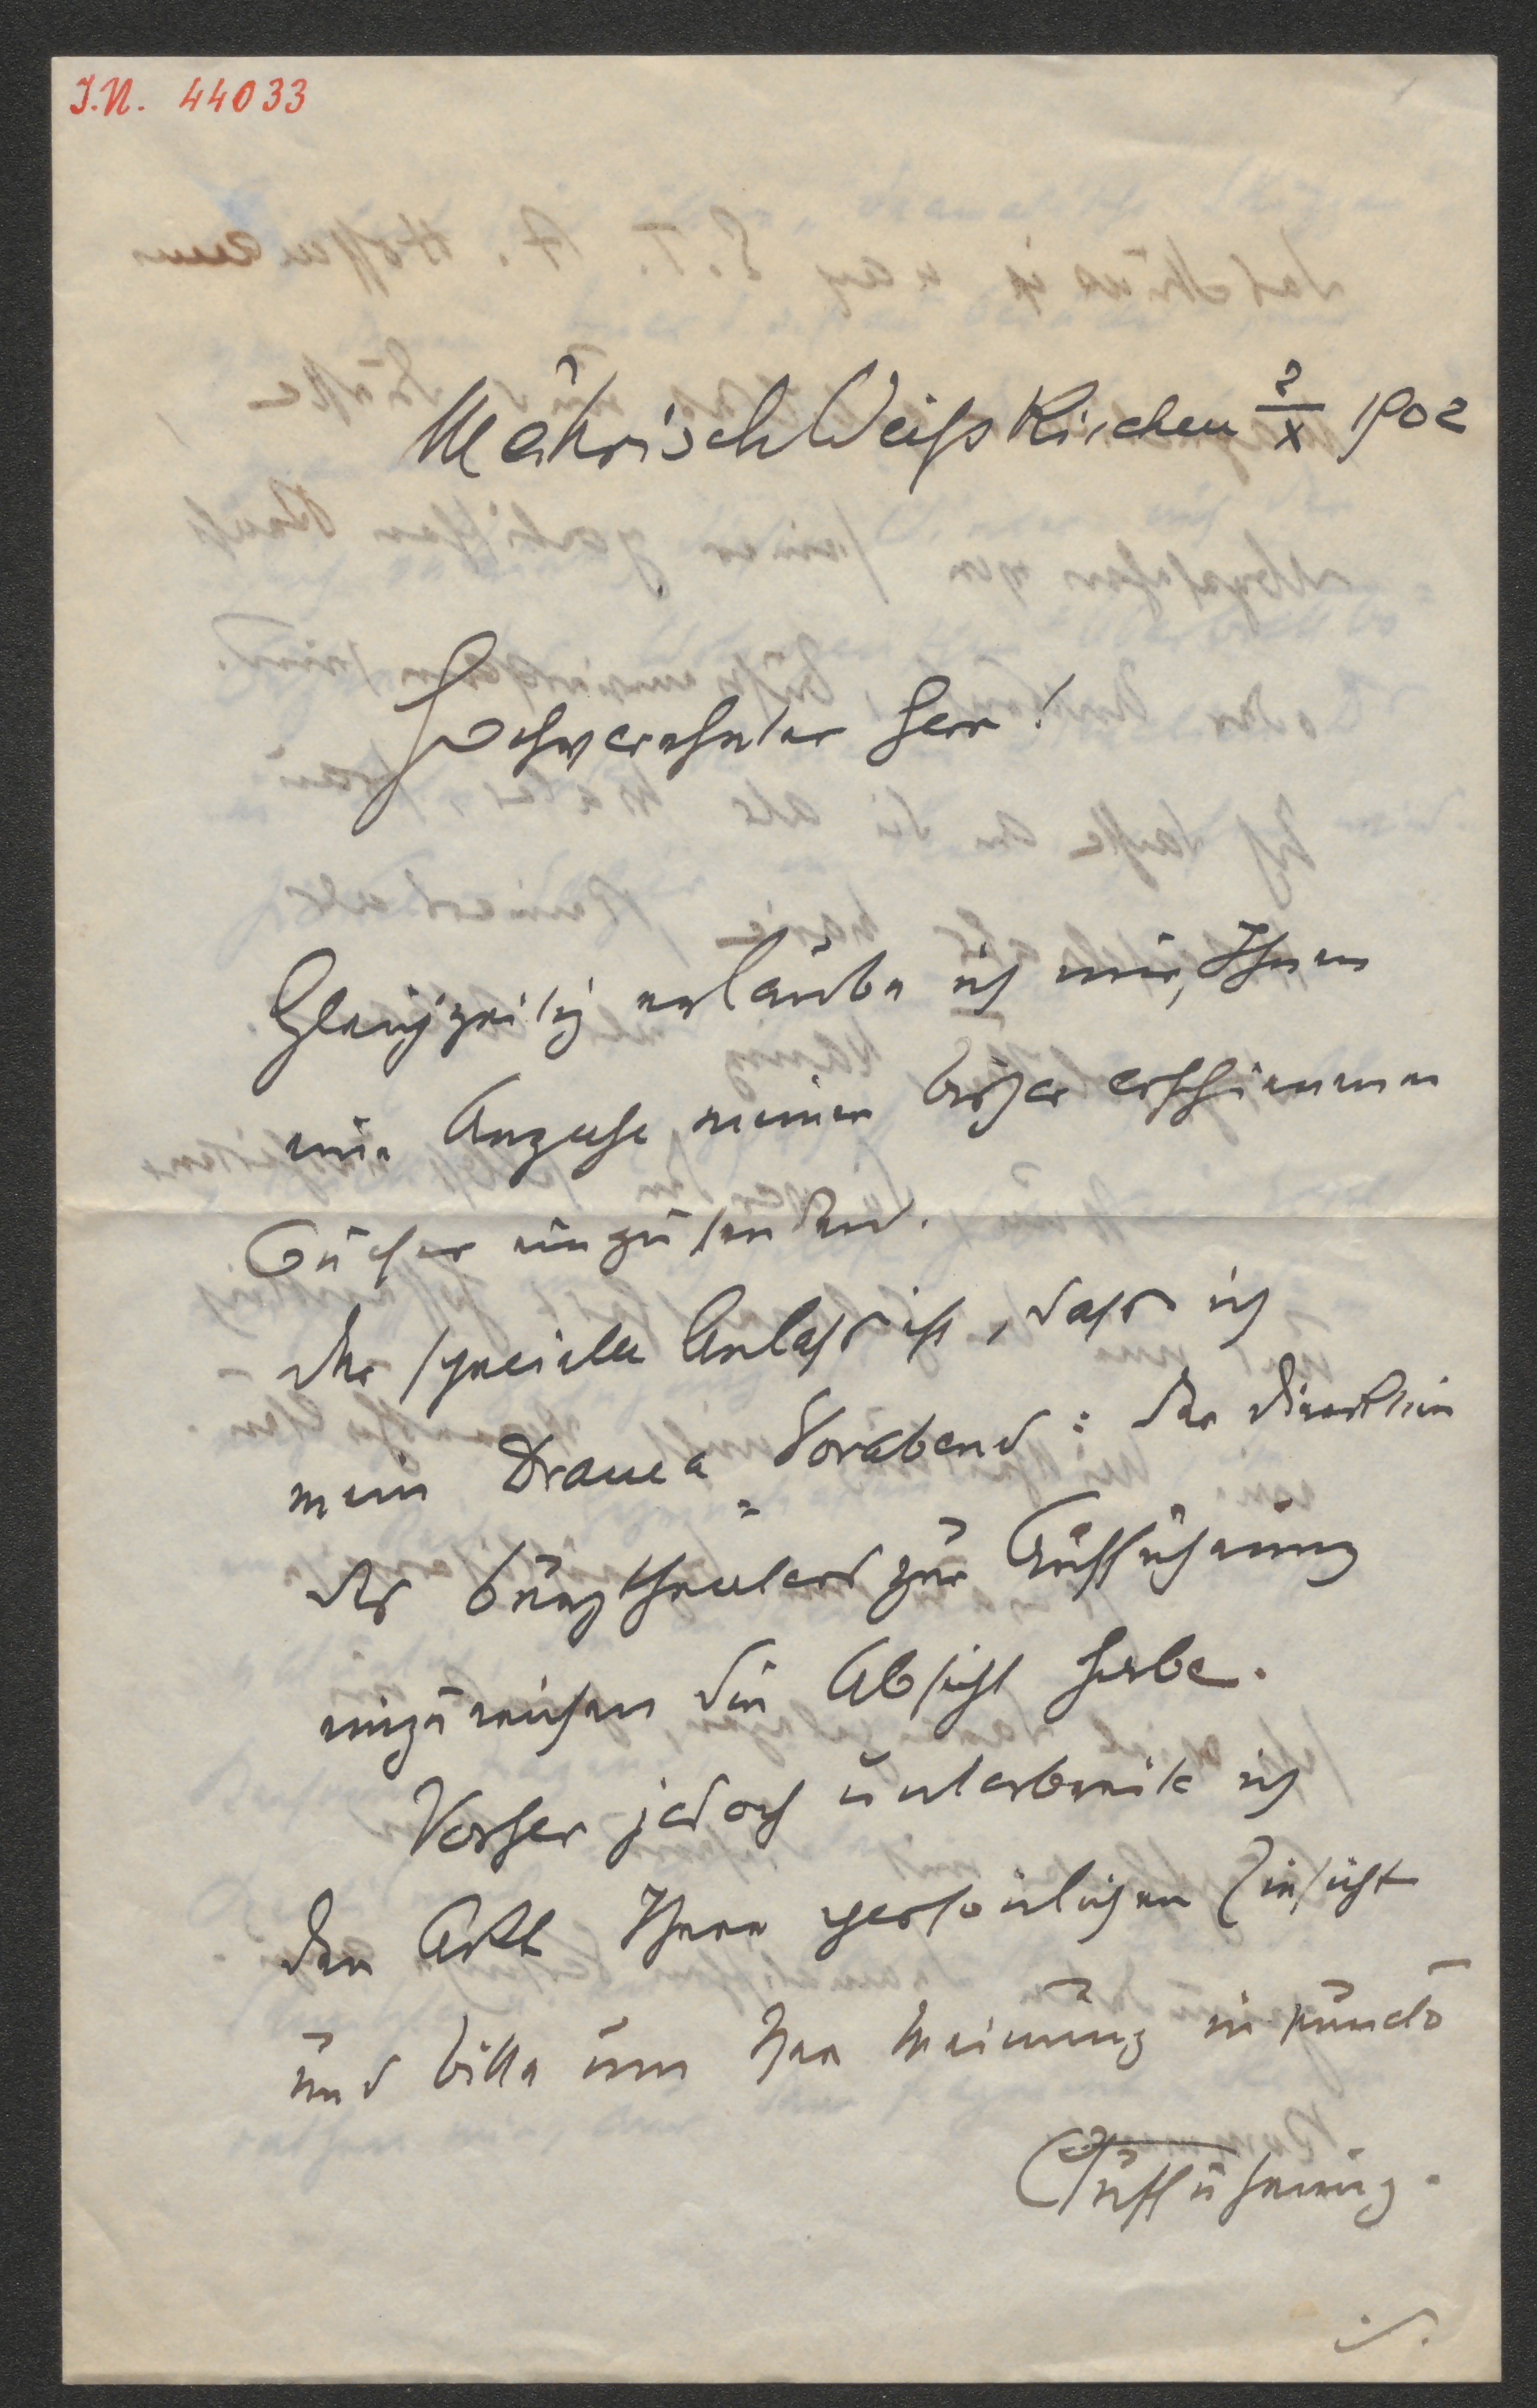 J.N. 44033
Mährisch Weißkirchen 2/X 1902
Hochverehrter Herr!
Gleichzeitig erlaube ich mir, Ihnen
eine Anzahl meiner bisher erschienenen
Bücher einzusenden.
Der specielle Anlaß ist, daß ich
mein Drama „Vorabend": der Direktion
des Burgtheaters zur Aufführung
einzureichen die Absicht habe.
Vorher jedoch unterbreite ich
den Akt Ihrer persönlichen Einsicht
und bitte um Ihre Meinung in puncto
Aufführung.